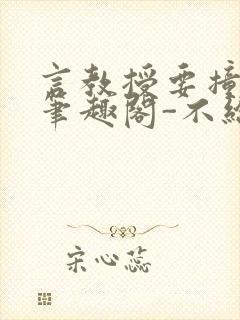 言教授要撞
笔趣阁-不经
宋心蕊